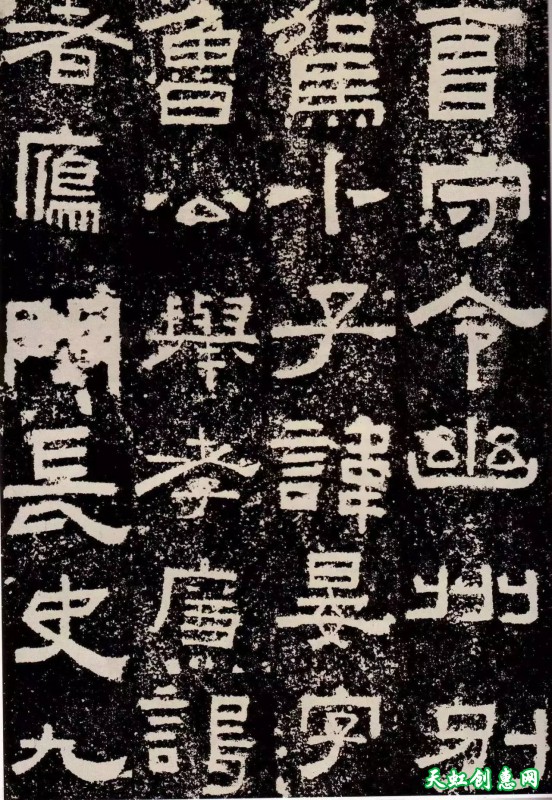 曹守令幽州別
駕小子諱晏字
魯公舉孝廉謁
者鴈門長史九
天虹创意网